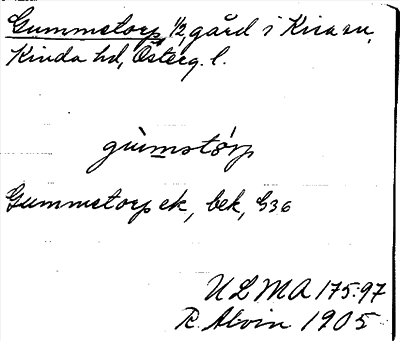 Gummetorp, 1/2, gård i Kisa sn,
Kinda hd, Österg. l.
gùmstórp
Gummetorp ek, bek, G36
ULMA 175:97
R. Alvin 1905